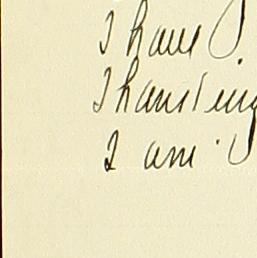 I have
Thanking
I am